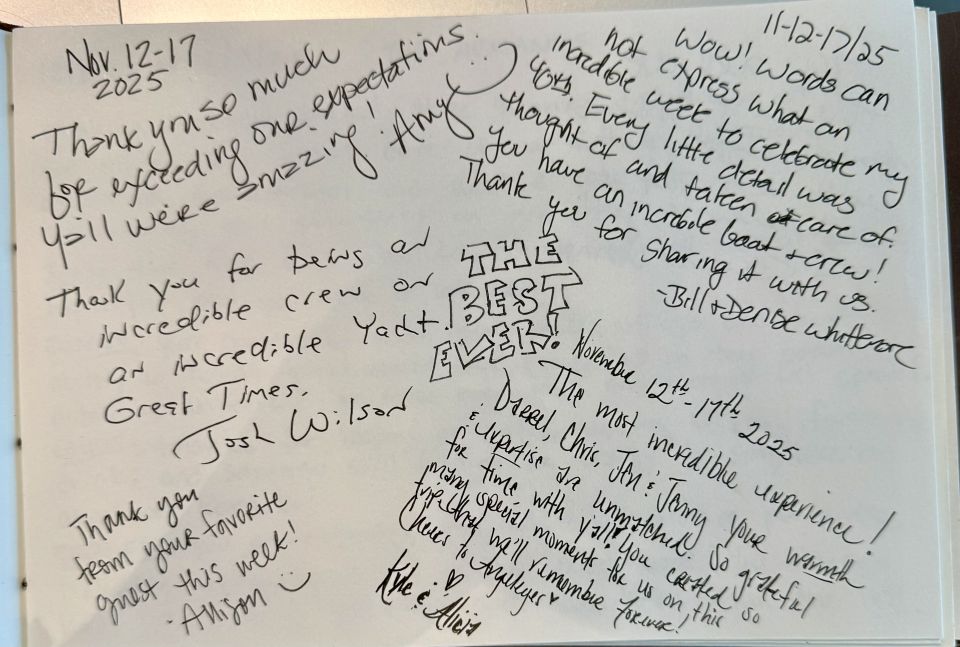 Nov. 12-17
2025
Thank you so much
for exceeding our expectations.
Y'all were amazing! Amy
11-12-17/25
Wow! Words can
not express what an
incredible week to celebrate my
40th. Every little detail was
thought of and taken care of.
You have an incredible boat + crew!
Thank you for sharing it with us.
-Bill + Denise Whittemore
Thank you for being an
incredible crew on
an incredible Yacht.
Great Times.
Josh Wilson
THE
BEST
EVER!
November 12th-17th 2025
The most incredible experience!
Darrel, Chris, Jen & Jenny your warmth
& expertise are unmatched. So grateful
for time with y'all! You created so
many special moments for us on this
trip that we'll remember forever!
Cheers to
Kyle & Alicia
Thank you
from your favorite
guest this week!
- Allison